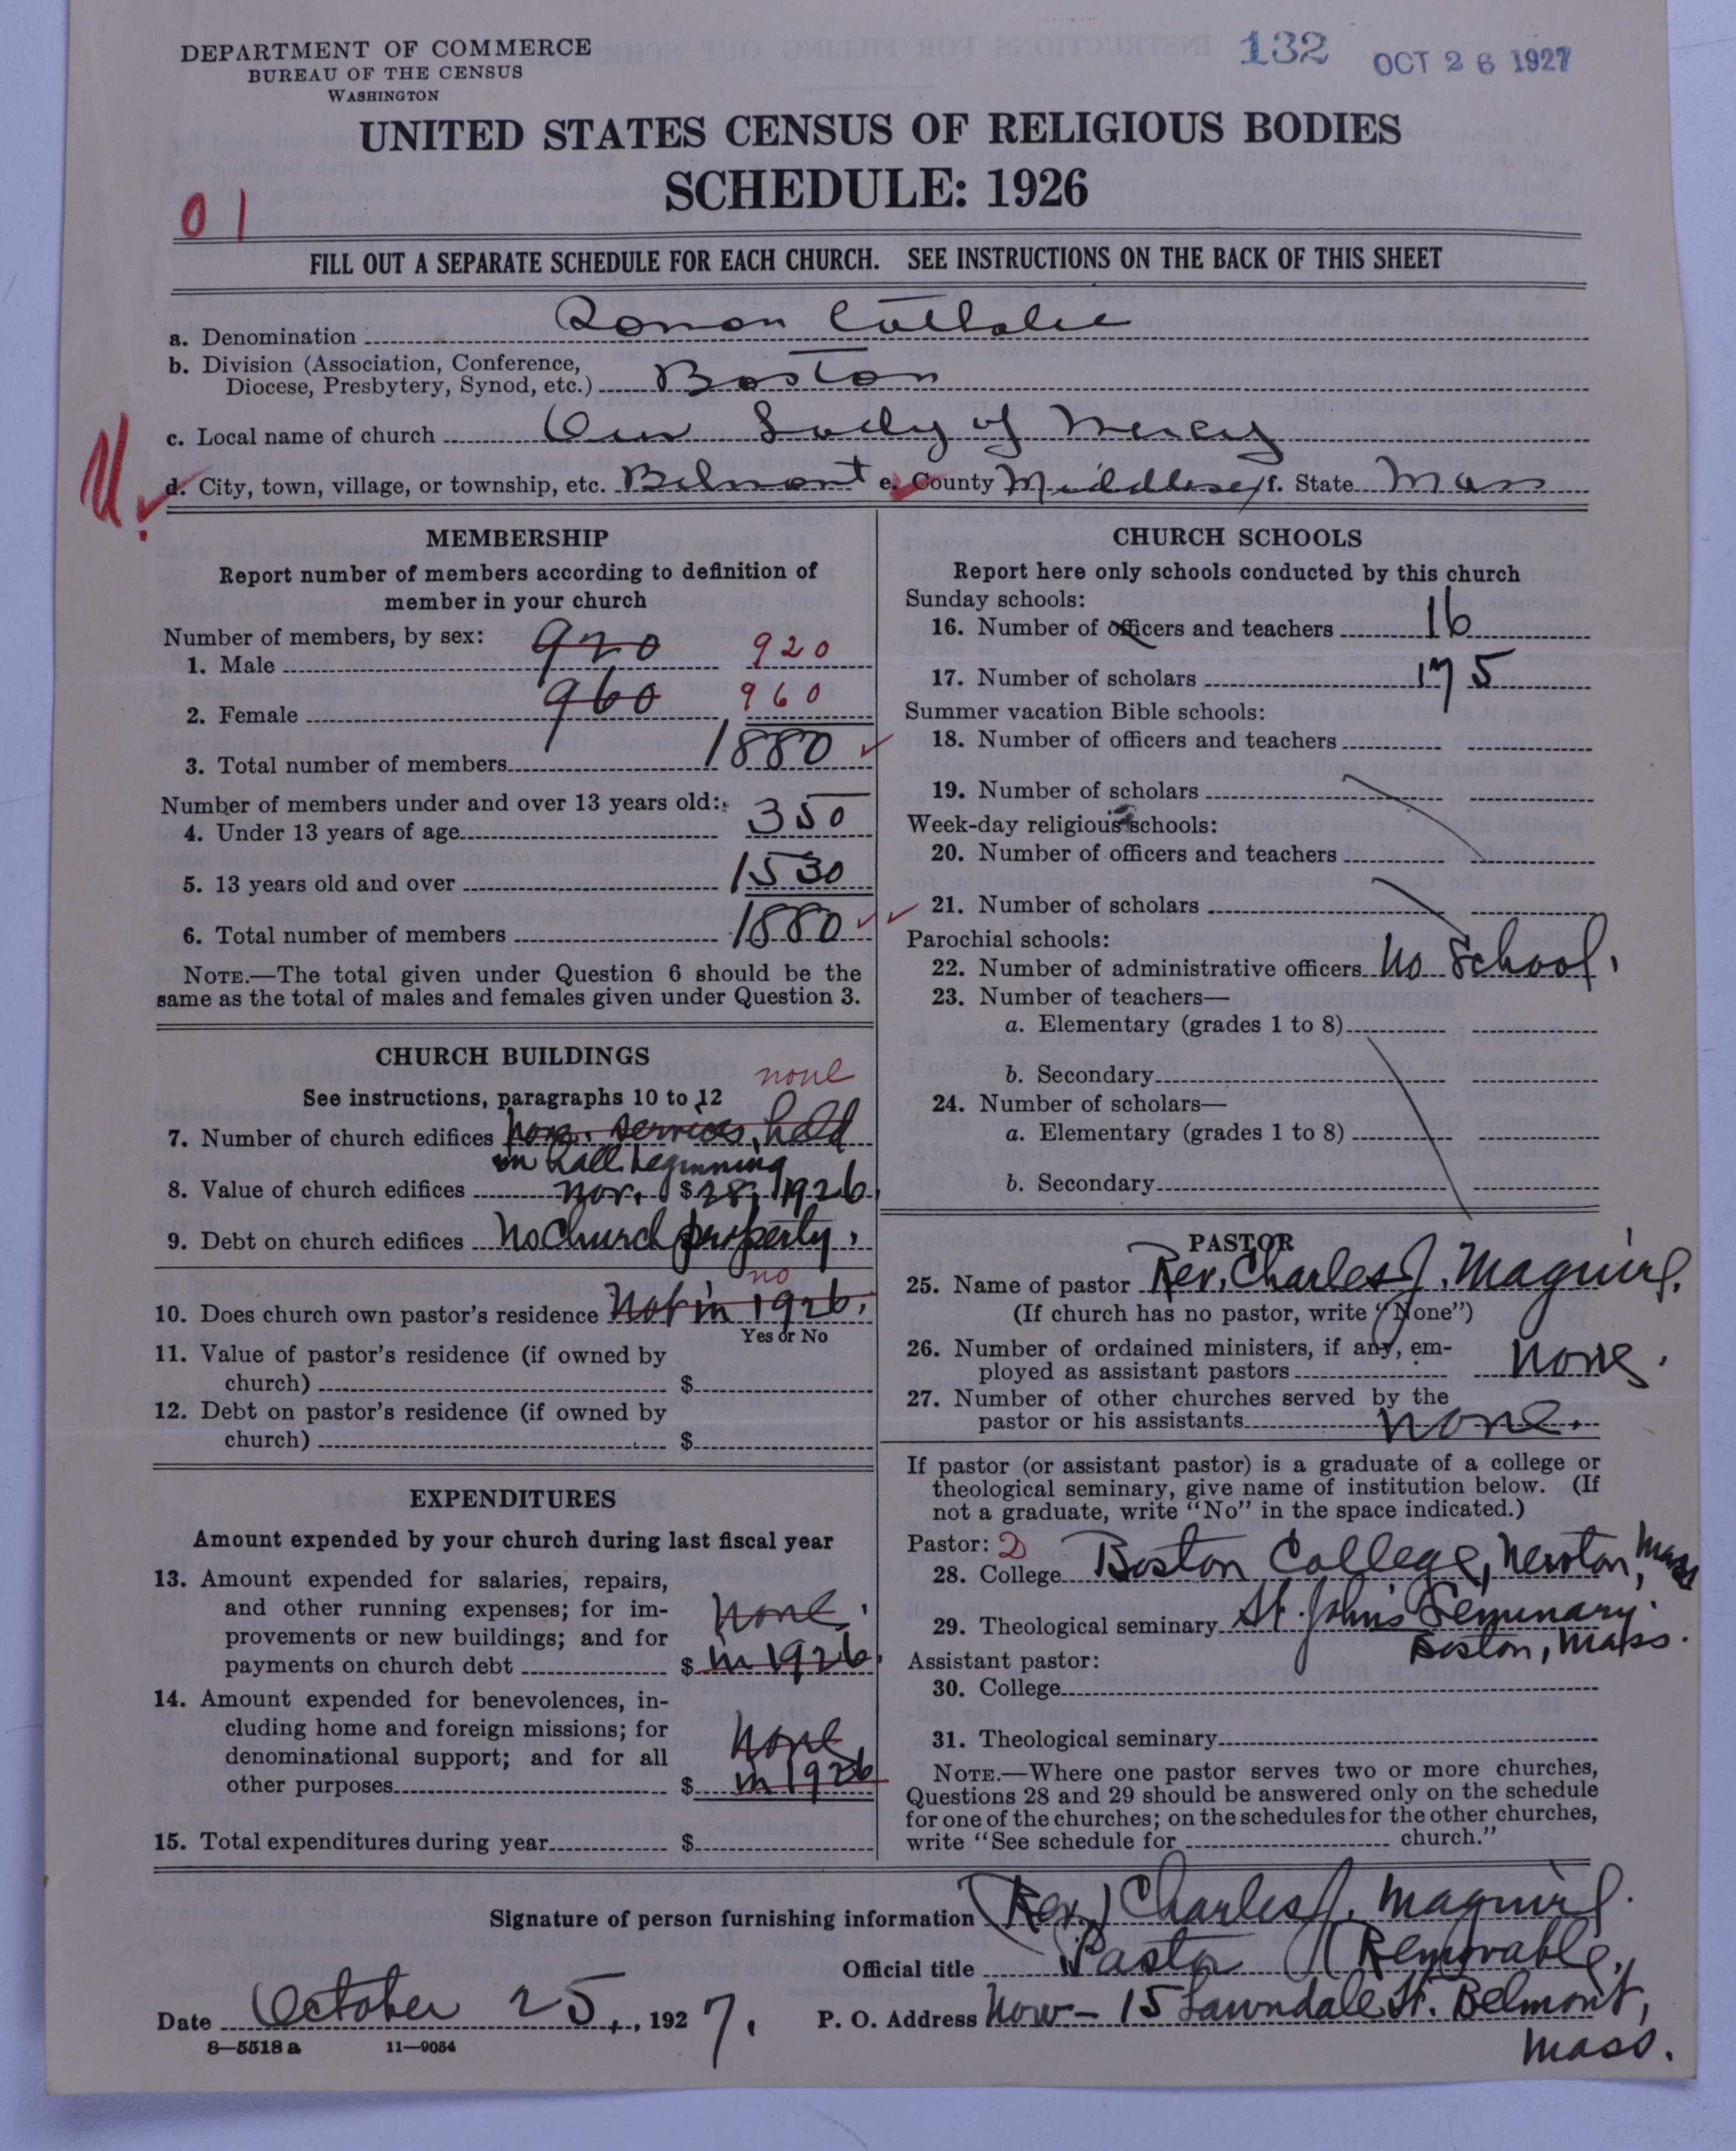 DEPARTMENT OF COMMERCE
BUREAU OF THE CENSUS
WASHINGTON
132
OCT 26 1927
UNITED STATES CENSUS OF RELIGIOUS BODIES
SCHEDULE: 1926
01
FILL OUT A SEPARATE SCHEDULE FOR EACH CHURCH. SEE INSTRUCTIONS ON THE BACK OF THIS SHEET
a. Denomination Roman Catholic
b. Division (Association, Conference,
Diocese, Presbytery, Synod, etc.) Boston
c. Local name of church Our Lady of Mercy
d. City, town, village, or township, etc. Belmont e. County Middlesex f. State Mass
MEMBERSHIP
Report number of members according to definition of
member in your church
Number of members, by sex:
1. Male 920 920
2. Female 960 960
3. Total number of members 1880
Number of members under and over 13 years old:
4. Under 13 years of age 350
5. 13 years old and over 1530
6. Total number of members 1880
NOTE.—The total given under Question 6 should be the
same as the total of males and females given under Question 3.
CHURCH BUILDINGS
none
See instructions, paragraphs 10 to 12
7. Number of church edifices none. Services held
in hall beginning
8. Value of church edifices Nov. $ 28, 1926.
9. Debt on church edifices No Church property.
no
10. Does church own pastor's residence Not in 1926.
Yes or No
11. Value of pastor's residence (if owned by
church) $
12. Debt on pastor's residence (if owned by
church) $
EXPENDITURES
Amount expended by your church during last fiscal year
13. Amount expended for salaries, repairs,
and other running expenses; for im-
provements or new buildings; and for
payments on church debt $ none in 1926.
14. Amount expended for benevolences, in-
cluding home and foreign missions; for
denominational support; and for all
other purposes $ none in 1926
15. Total expenditures during year $
CHURCH SCHOOLS
Report here only schools conducted by this church
Sunday schools:
16. Number of officers and teachers 16
17. Number of scholars 175
Summer vacation Bible schools:
18. Number of officers and teachers
19. Number of scholars
Week-day religious schools:
20. Number of officers and teachers
21. Number of scholars
Parochial schools:
22. Number of administrative officers No School.
23. Number of teachers—
a. Elementary (grades 1 to 8)
b. Secondary
24. Number of scholars—
a. Elementary (grades 1 to 8)
b. Secondary
PASTOR
25. Name of pastor Rev. Charles J. Maguire.
(If church has no pastor, write "None")
26. Number of ordained ministers, if any, em-
ployed as assistant pastors none.
27. Number of other churches served by the
pastor or his assistants none.
If pastor (or assistant pastor) is a graduate of a college or
theological seminary, give name of institution below. (If
not a graduate, write "No" in the space indicated.)
Pastor: 2
28. College Boston College, Newton, Mass
29. Theological seminary St. John's Seminary
Boston, Mass.
Assistant pastor:
30. College
31. Theological seminary
NOTE.—Where one pastor serves two or more churches,
Questions 28 and 29 should be answered only on the schedule
for one of the churches; on the schedules for the other churches,
write "See schedule for church."
Signature of person furnishing information (Rev.) Charles J. Maguire.
Official title Pastor (Removable)
Date October 25, 1927. P. O. Address Now - 15 Lawndale St. Belmont,
Mass.
8—5518 a 11—9054